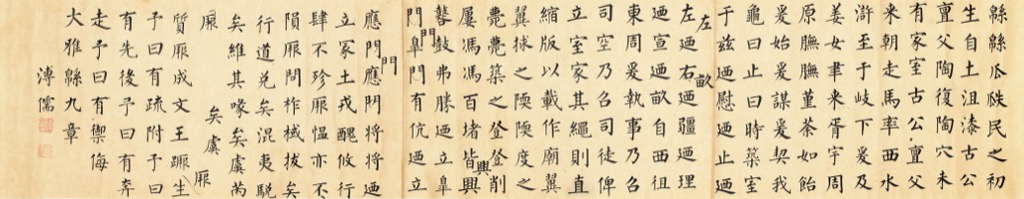 緜緜瓜瓞民之初
生自土沮漆古公
亶父陶復陶穴未
有家室古公亶父
來朝走馬率西水
滸至于岐下爰及
姜女聿來胥宇周
原膴膴堇荼如飴
爰始爰謀爰契我
龜曰止曰時築室
于茲迺慰迺止迺
左 畝
左迺右迺疆迺理
迺宣迺畝自西徂
東周爰執事乃召
司空乃召司徒俾
立室家其繩則直
縮版以載作廟翼
翼捄之陾陾度之
薨薨築之登登削
興
屢馮馮百堵皆興
鼛鼓弗勝迺立皋
門
門皋門有伉迺立
門
應門應門將將迺
立冢土戎醜攸行
肆不殄厥慍亦不
隕厥問柞棫拔矣
行道兌矣混夷駾
矣維其喙矣虞芮
厥 矣虞 厥
質厥成文王蹶生
予曰有疏附予曰
有先後予曰有奔
走予曰有禦侮
大雅緜九章
溥儒